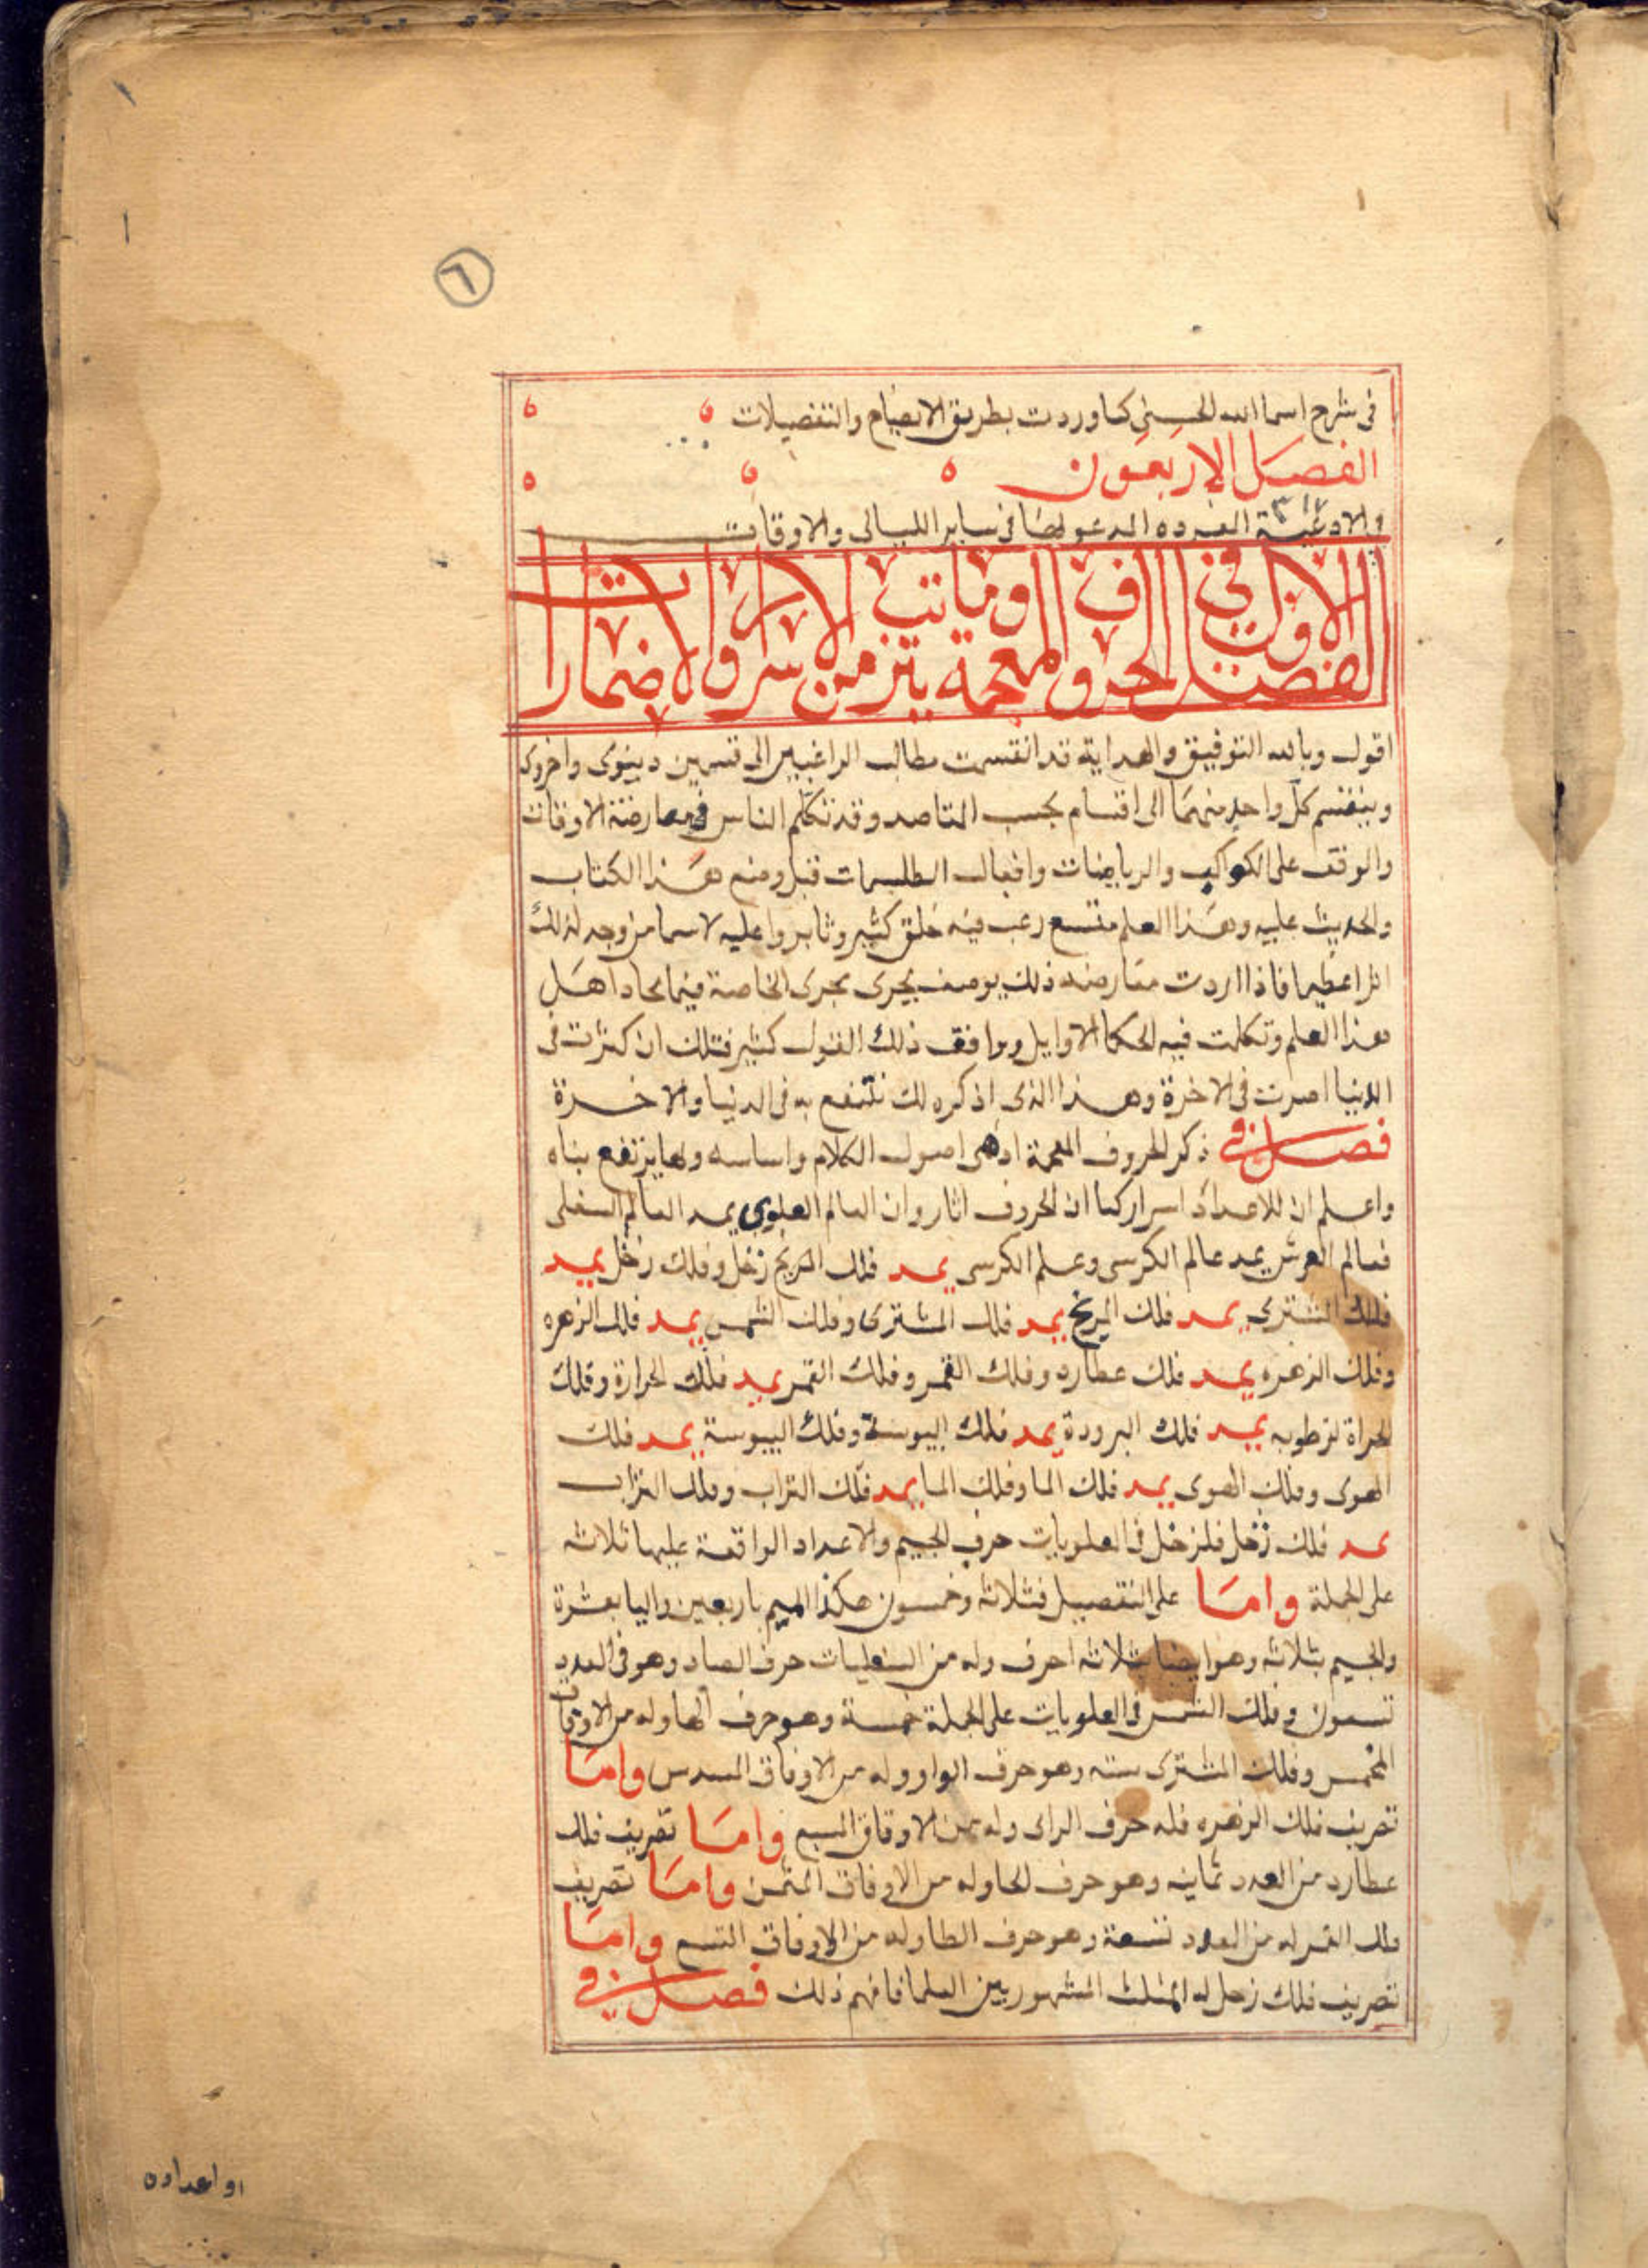 ٦
فى شرح اسما الله الحسنى كما وردت بطريق الايضاح والتفصيلات
الفصل الاربعون
والادعية المدعو بها فى ساير الليالى والاوقات
الفصل الاول فى الحروف المعجمة وما يترتب من الاسرار والاضمارات
اقول وبالله التوفيق والهداية قد انقسمت مطالب الراغبين الى قسمين دينوى واخروى
وينقسم كل واحد منهما الى اقسام بحسب المقاصد وقد تكلم الناس فى معارضة الاوقات
والوقف على الكواكب والرياضات وافعال الطلسمات قبل وضع هذا الكتاب
والحديث عليه وهذا العلم متسع رغب فيه خلق كثير وثابروا عليه لاسما من وجد لذلك
اثرا عظيما فاذا اردت معارضه ذلك بوصف يجرى مجرى الخاصة فيما اهل
هذا العلم وتكلمت فيه الحكما الاوايل ويوافق ذلك القول كثير فتلك ان كثرت فى
الدنيا اضرت فى الاخرة وهذا الذى اذكره لك تنتفع به فى الدنيا والاخرة
فصل فى ذكر الحروف المعجمة اذ هى اصول الكلام واساسه وبها يرتفع بناه
واعلم ان للاعداد اسرار كما ان للحروف اثار وان العالم العلوى يمد العالم السفلى
فعالم العرش يمد عالم الكرسى وعلم الكرسى يمد فلك المريخ زحل وفلك زحل يمد
فلك المشترى يمد فلك المريخ يمد فلك المشترى وفلك الشمس يمد فلك الزهره
وفلك الزهره يمد فلك عطارد وفلك القمر وفلك القمر يمد فلك الحرارة وفلك
الحراة لرطوبه يمد فلك البرودة يمد فلك اليبوسة وفلك اليبوسة يمد فلك
الهوى وفلك الهوى يمد فلك الما وفلك الما يمد فلك التراب وفلك التراب
يمد فلك زحل فلزحل فى العلويات حرف الجيم والاعداد الواقعة عليها ثلاثه
على الجملة واما على التفصيل فثلاثه وخمسون هكذا الميم باربعين واليا بعشرة
والجيم بثلاثه وهو ايضا ثلاثه احرف وله من السفليات حرف الصاد وهو فى العدد
تسعون وفلك الشمس فى العلويات على الجملة خمسة وهو حرف الها وله من الاوفاق
المخمس وفلك المشترى سته وهو حرف الواو وله من الاوفاق المسدس واما
تصريف فلك الزهره فله حرف الزاى وله من الاوفاق المسبع واما تصريف فلك
عطارد من العدد ثمانيه وهو حرف الحا وله من الاوفاق المثمن واما تصريف
فلك القمر له من العدد تسعة وهو حرف الطا وله من الاوفاق التسع واما
تصريف فلك زحل له المثلث المشهور بين العلما فافهم ذلك فصل فى
او اعداده